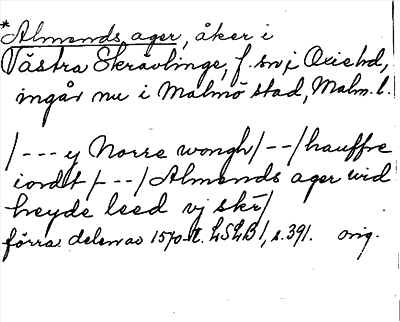 *Almends ager, åker i
Västra Skrävlinge, f. sn, i Oxie hd,
ingår nu i Malmö stad, Malm. l.
/--- y Norre wongh/--/hauffre
iordt/--/Almends ager wid
heyde leed vj skr/
förra delen av 1570-t. LSLB 1, s. 391. orig.